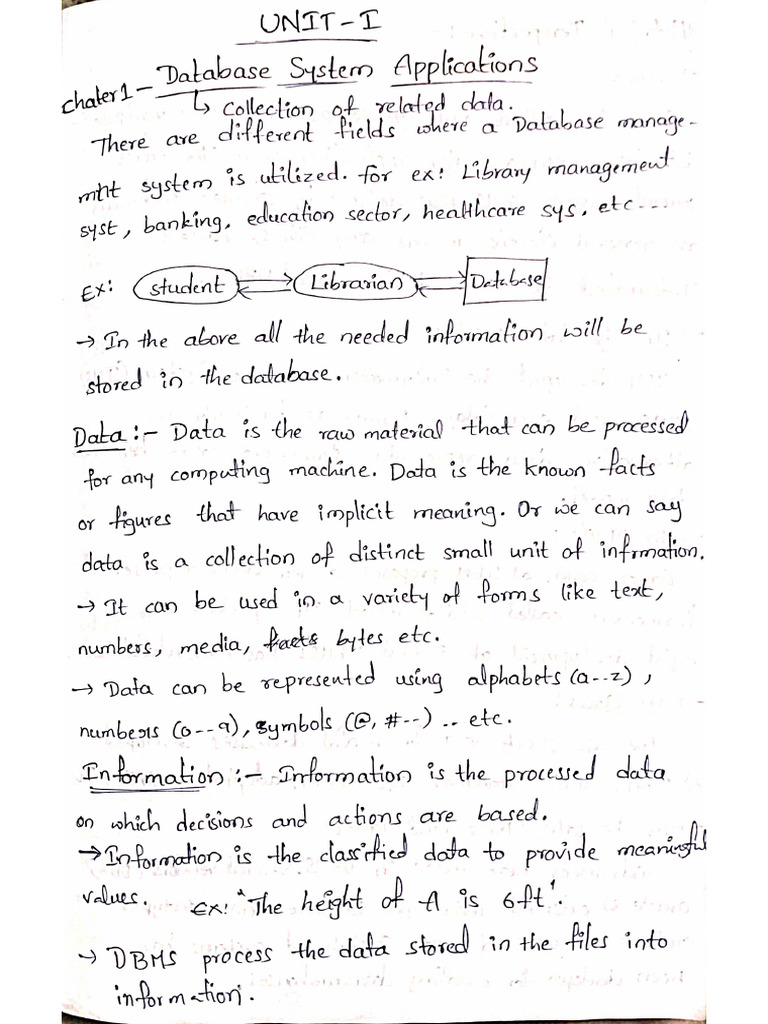 UNIT-I
chater1- Database System Applications
↳ collection of related data.
There are different fields where a Database manage-
mnt system is utilized. for ex: Library management
syst, banking, education sector, healthcare sys, etc---
Ex: student Librarian Database
→ In the above all the needed information will be
stored in the database.
Data :- Data is the raw material that can be processed
for any computing machine. Data is the known facts
or figures that have implicit meaning. Or we can say
data is a collection of distinct small unit of infrmation.
→ It can be used in a variety of forms like text,
numbers, media, facts bytes etc.
→ Data can be represented using alphabets (a--z),
numbers (0--9), symbols (@, #--) .. etc.
Information :- Information is the processed data
on which decisions and actions are based.
→ Information is the classified data to provide meaningful
values. Ex: "The height of A is 6ft'.
→ DBMS process the data stored in the files into
information.